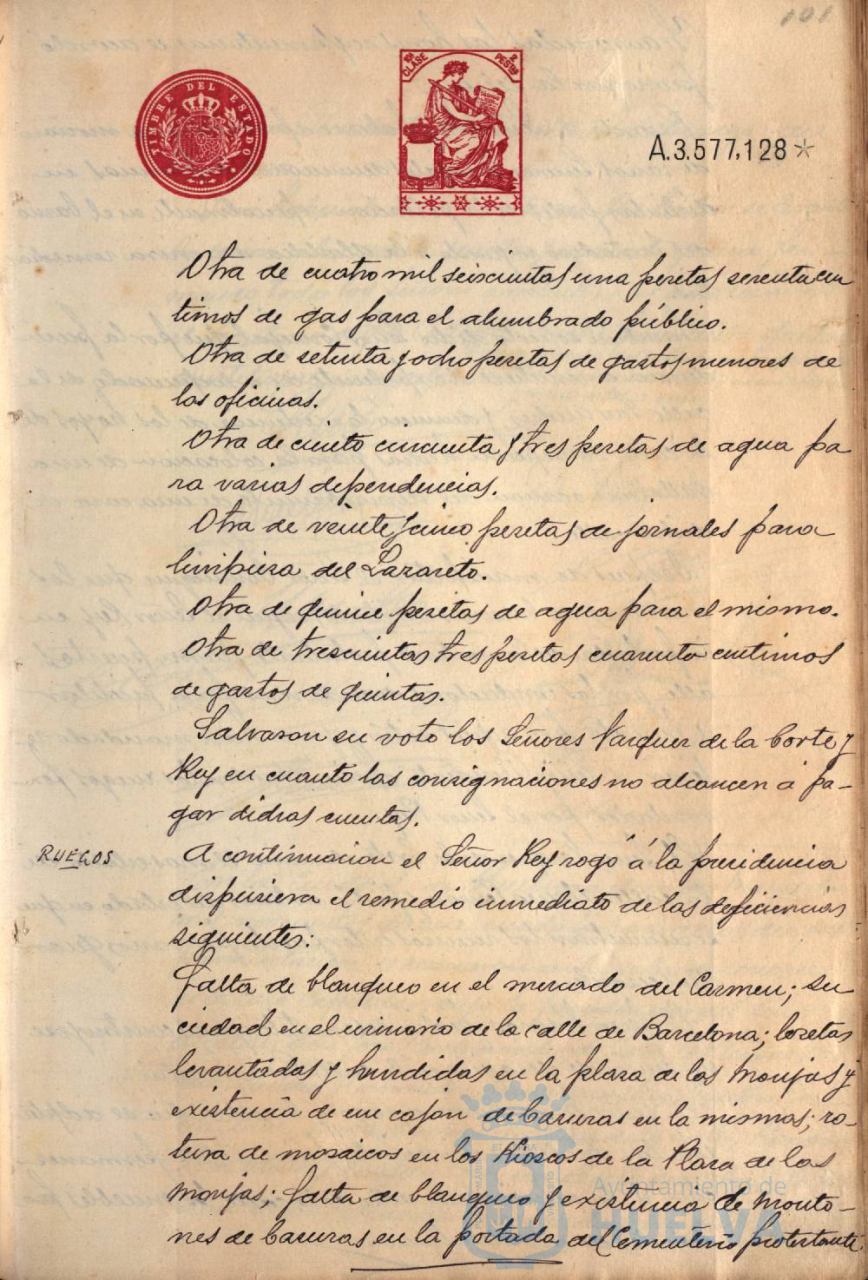 101
TIMBRE DEL ESTADO
10ª CLASE 2 PESTAS
A.3.577,128*
Otra de cuatro mil seiscientas una pesetas sesenta cen
timos de gas para el alumbrado público.
Otra de setenta y ocho pesetas de gastos menores de
las oficinas.
Otra de ciento cincuenta y tres pesetas de agua pa
ra varias dependencias.
Otra de veinte y cinco pesetas de jornales para
limpieza del Lazareto.
Otra de quince pesetas de agua para el mismo.
Otra de trescientas tres pesetas cuarenta centimos
de gastos de quintas.
Salvaron su voto los Señores Vazquez de la Corte y
Rey en cuanto las consignaciones no alcancen á pa-
gar dichas cuentas.
RUEGOS
A continuacion el Señor Rey rogó á la presidencia
dispusiera el remedio inmediato de las deficiencias
siguientes:
falta de blanqueo en el mercado del Carmen; su
ciedad en el urinario de la calle de Barcelona; losetas
levantadas y hundidas en la plaza de las Monjas y
existencia de un cajon de basuras en la mismas; ro-
tura de mosaicos en los Kioscos de la Plaza de las
Monjas; falta de blanqueo y existencia de monto-
nes de basuras en la portada del Cementerio protestante.
Ayuntamiento de
HUELVA